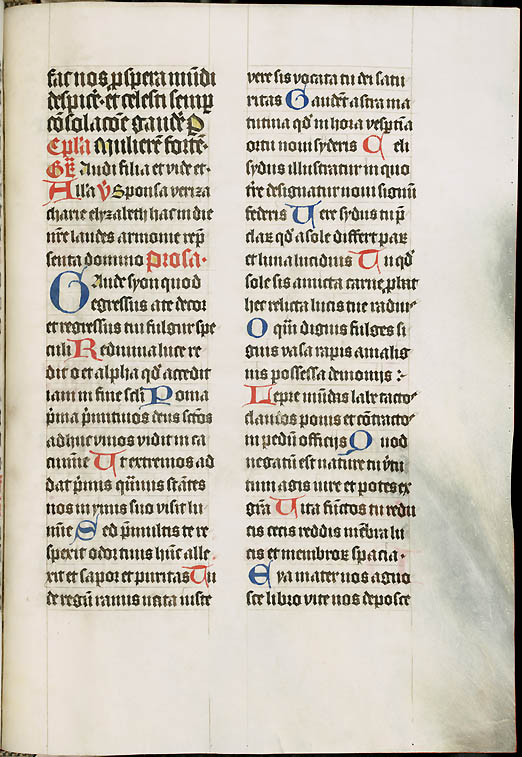 fac nos ꝑspera mūdi
despicẽ · et celesti semp
cõsolacõe gaudẽ P
Epl̃a Mulierẽ fortẽ ·
Gr̃ Audi filia et vide et ·
Alla ꝟ Sponsa veri za
charie elyzabeth hac in die
nr̃e laudes armonie repͥ
senta domino Prosa ·
Gaude syon quod
egressus a te decor
et regressus tui fulgur spe
culi Rediuiua luce re
dit o et alpha qd̾ accedit
iam in fine scl̃i Poma
pͥma pͥmitiuos deus scõs
adhuc viuos vidit in ca
cumĩe Ut extremos ad
dat pͥmis quͥnus stãtes
nos in ymis suo visit lu
mĩe Sed pͥ multis te re
spexit odor tuus hũc alle
xit et sapor et puritas Tu
de regũ ramis vncta iuste
vere sis vocata tu dei satu
ritas Gaudẽt astra ma
tutina qd̾ in hora vesꝑtĩa
ortu noui syderis Celi
sydus illustratur in quo
fr̃e designatur noui signũ
federis Vere sydus tu pͥ
claꝝ qd̾ a sole differt paꝝ
et luna lucidius Tu qd̾
sole sis amicta carnẽ plãt
hec relicta lucis tue radiꝰ
O quͥm dignius fulges si
gnis vasa rapis a malig
nis possessa demonijs :~
Lepre mũdas labe tacto
claudos ponis et cõtracto
in pedũ officijs Quod
negatũ est nature tu vͥtu
tum agis iure et potes ex
gr̃a Vita fũctos tu redu
cis cecis reddis mẽbra lu
cis et membroꝝ spacia ·
Eya mater nos agno
sce libro vite nos deposce